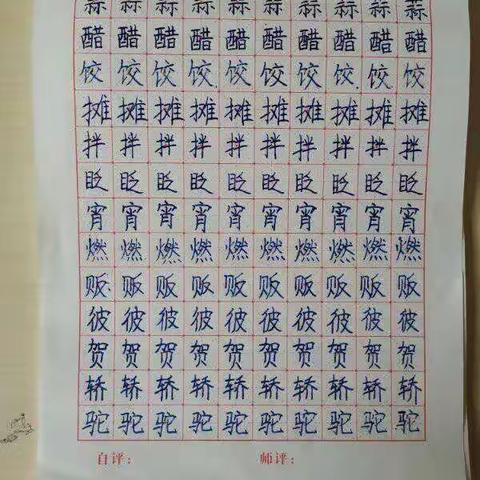 蒜蒜蒜蒜蒜蒜蒜蒜蒜蒜
醋醋醋醋醋醋醋醋醋醋
饺饺饺饺饺饺饺饺饺饺
摊摊摊摊摊摊摊摊摊摊
拌拌拌拌拌拌拌拌拌拌
眨眨眨眨眨眨眨眨眨眨
宵宵宵宵宵宵宵宵宵宵
燃燃燃燃燃燃燃燃燃燃
贩贩贩贩贩贩贩贩贩贩
彼彼彼彼彼彼彼彼彼彼
贺贺贺贺贺贺贺贺贺贺
轿轿轿轿轿轿轿轿轿轿
驼驼驼驼驼驼驼驼驼驼
自评： 师评：